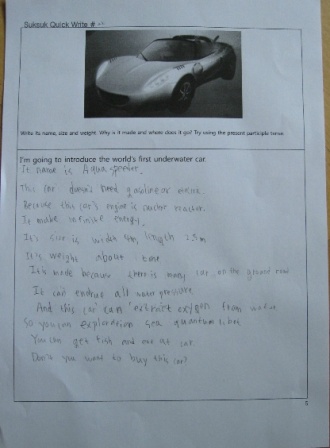 Suksuk Quick Write #
Write its name, size and weight. Why is it made and where does it go? Try using the present participle tense.
I'm going to introduce the world's first underwater car.
It name is Aqua-
This car doesn't need gasoline or
Because this car's engine is
It make infinite energy.
It's car is width 4m, length 2.5m
It's weight about 1
It's made because there is many car on the ground road
It can endure all water pressure
And this car can extract oxygen from water
So you can sea
You can get fish and eat at car
Don't you want to buy this car?